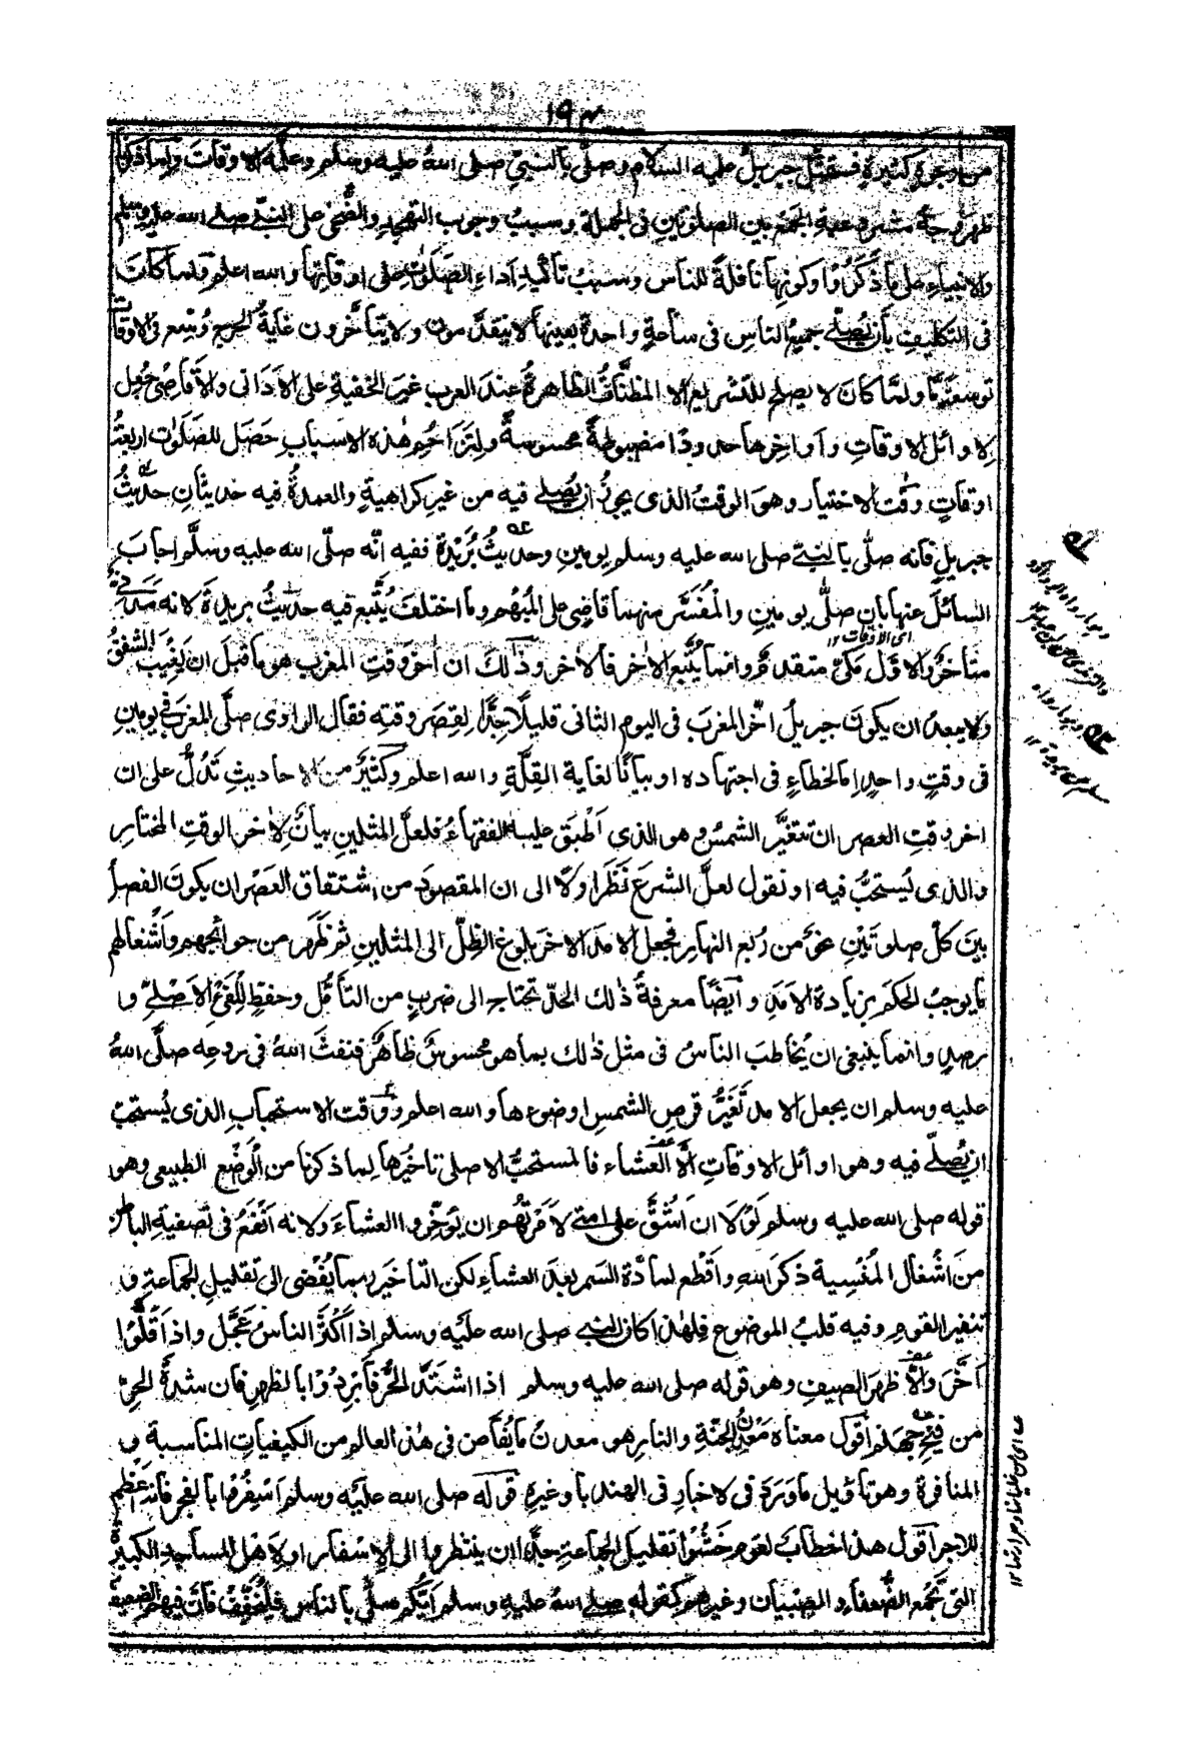 ١٩٣
من وجوه كثيرة فتمثّل جبريل عليه السلام وصلّى بالنبي صلى الله عليه وسلم وعلّمه الاوقات ولما ذكرنا
ظهر وجهُ مشروعية الجمع بين الصلوتين فى الجملة وسببُ وجوب التهجد والضحى على النبى صلى الله عليه وسلم
والانبياء على ما ذَكَرُوْا وكونها نافلةً للناس وسببُ تأكيد اَداءِ الصَّلَوٰت على اوقاتها والله اعلم ولما كانَ
فى التكليف بأن يُصلّى جميع الناس فى ساعةٍ واحدةٍ بعينها لا يتقدّمون ولا يتأخّرون غايةُ الحرج وُسّع فى الاوقات
توسعةً مّا ولمّا كانَ لا يصلح للتشريع الا المظنّات الظاهرةُ عند العرب غيرَ الخفية على الاَدَانى والاَقَاصى جُعِل
لاوائل الاوقاتِ واَواخِرها حدودًا مضبوطةً محسوسةً ولِتَزَاحُم هٰذه الاسباب حَصَل للصَّلَوٰت اربعةُ
اوقاتٍ وقتُ الاختيار وهو الوقتُ الذى يجوز ان يُصلى فيه من غير كراهيةٍ والعمدةُ فيه حديثان حديثُ
جبريل فانه صلّى بالنبى صلى الله عليه وسلم يومين وحديثُ بُرَيْدة ففيه انّه صلّى الله عليه وسلّم اجابَ
السائلَ عنها بان صلّى يومين والمُفَسَّر منهما قاضٍ على المُبْهَم وما اختلفَ يُتَّبع فيه حديثُ بريدةَ لانه مَدَنىٌّ
اى الاوقات ١٢
متأخرٌ والاوّل مَكىٌّ متقدمٌ وانما يُتَّبع الاٰخر فالاٰخر وذٰلك ان اٰخر وقتِ المغرب هو ما قبلَ ان يَغِيْبَ الشفقُ
ولا يبعدُ ان يكونَ جبريلُ اخّر المغربَ فى اليوم الثانى قليلًا جدًّا لِقِصَر وقتِه فقال الراوى صلَّى المغربَ فى يومين
فى وقتٍ واحدٍ اما لخطاءٍ فى اجتهاده او بيانًا لغاية القِلَّةِ والله اعلم وكثيرٌ من الاحاديثِ تَدُلُّ على ان
اٰخر وقتِ العصر ان تتغيَّر الشمسُ وهو الذى اَطْبَق عليه الفقهاءُ فلعلّ المثلين بيانٌ لاٰخر الوقتِ المختار
والذى يُستحبُّ فيه او نقول لعلَّ الشرعَ نَظَرَ اولًا الى ان المقصودَ من اشتقاق العَصْر ان يكونَ الفصلُ
بينَ كلّ صلوتَيْنِ نحوً من رُبع النهار فجعلَ الاَمدَ الاٰخرَ بلوغَ الظلّ الى المثلين ثم ظَهَر من حوائجهم واَشْغالهم
ما يوجبُ الحكمَ بزيادة الاَمَدِ واَيضًا معرفةُ ذٰلك الحدّ تحتاج الى ضربٍ من التأمُّل وحفظٍ لِلفَىءِ الاَصْلىّ و
رصدٍ وانما ينبغى ان يُخَاطبَ الناسُ فى مثل ذٰلك بما هو محسوسٌ ظاهرٌ فنفثَ اللهُ فى روعِه صلَّى اللهُ
عليه وسلم ان يجعل الامدَ تَغَيُّرَ قرصِ الشمس او ضوءها والله اعلم ووقت الاستحباب الذى يُستحبّ
ان يُصلّى فيه وهو اوائل الاوقاتِ اِلَّا العشاء فالمستحبُّ الاصلى تاخيرُها لِما ذكرنا من الوضْع الطبيعى وهو
قوله صلى الله عليه وسلم لَوْلَا ان اَشُقَّ على امتى لَاَمَرْتُهم ان يؤخّروا العشاءَ ولانه اَنْفَعُ فى تصفيةِ الباطن
من اَشْغال المُنْسِية ذكرَ اللهِ واَقْطع لمادّة السَّمر بعدَ العشاءِ لكن التأخير ربما يُفْضى الى تقليل الجماعة و
تنفيرِ القوم وفيه قلبُ الموضوع فلهٰذا كان النبى صلى الله عليه وسلم اِذا اَكْثَرَ الناسُ عَجَّل واذا قَلُّوْا
اَخَّرَ واِلَّا ظهرَ الصيفِ وهو قوله صلى الله عليه وسلم اذا اشتَدَّ الحَرُّ فاَبْرِدُوْا بالظهر فان شدةَ الحرِّ
من فَيْحِ جهنم اَقول معناه مَعْدِنُ الجنّةِ والنارِ هو معدنُ ما يُفَاض فى هٰذا العالم من الكيفيات المناسبة و
المنافرة وهو تأويل ما وَرَدَ فى الاخبار فى الهندبا وغيره قولُه صلى الله عليه وسلم اَسْفِرُوْا بالفجر فانه اعظم
للاجر اَقول هذا خطابٌ لقوم خَشُوْا تقليلَ الجماعةِ جدًّا ان ينتظروا الى الاِسْفار او لاَهْل المساجد الكبيرة
التى تَجْمَع الضُّعفاء والصبيان وغيرهم كقوله صلى اللهُ عليه وسلم اَيُّكم صلَّى بالناس فليُخفِّفْ فان فيهم الضعيف